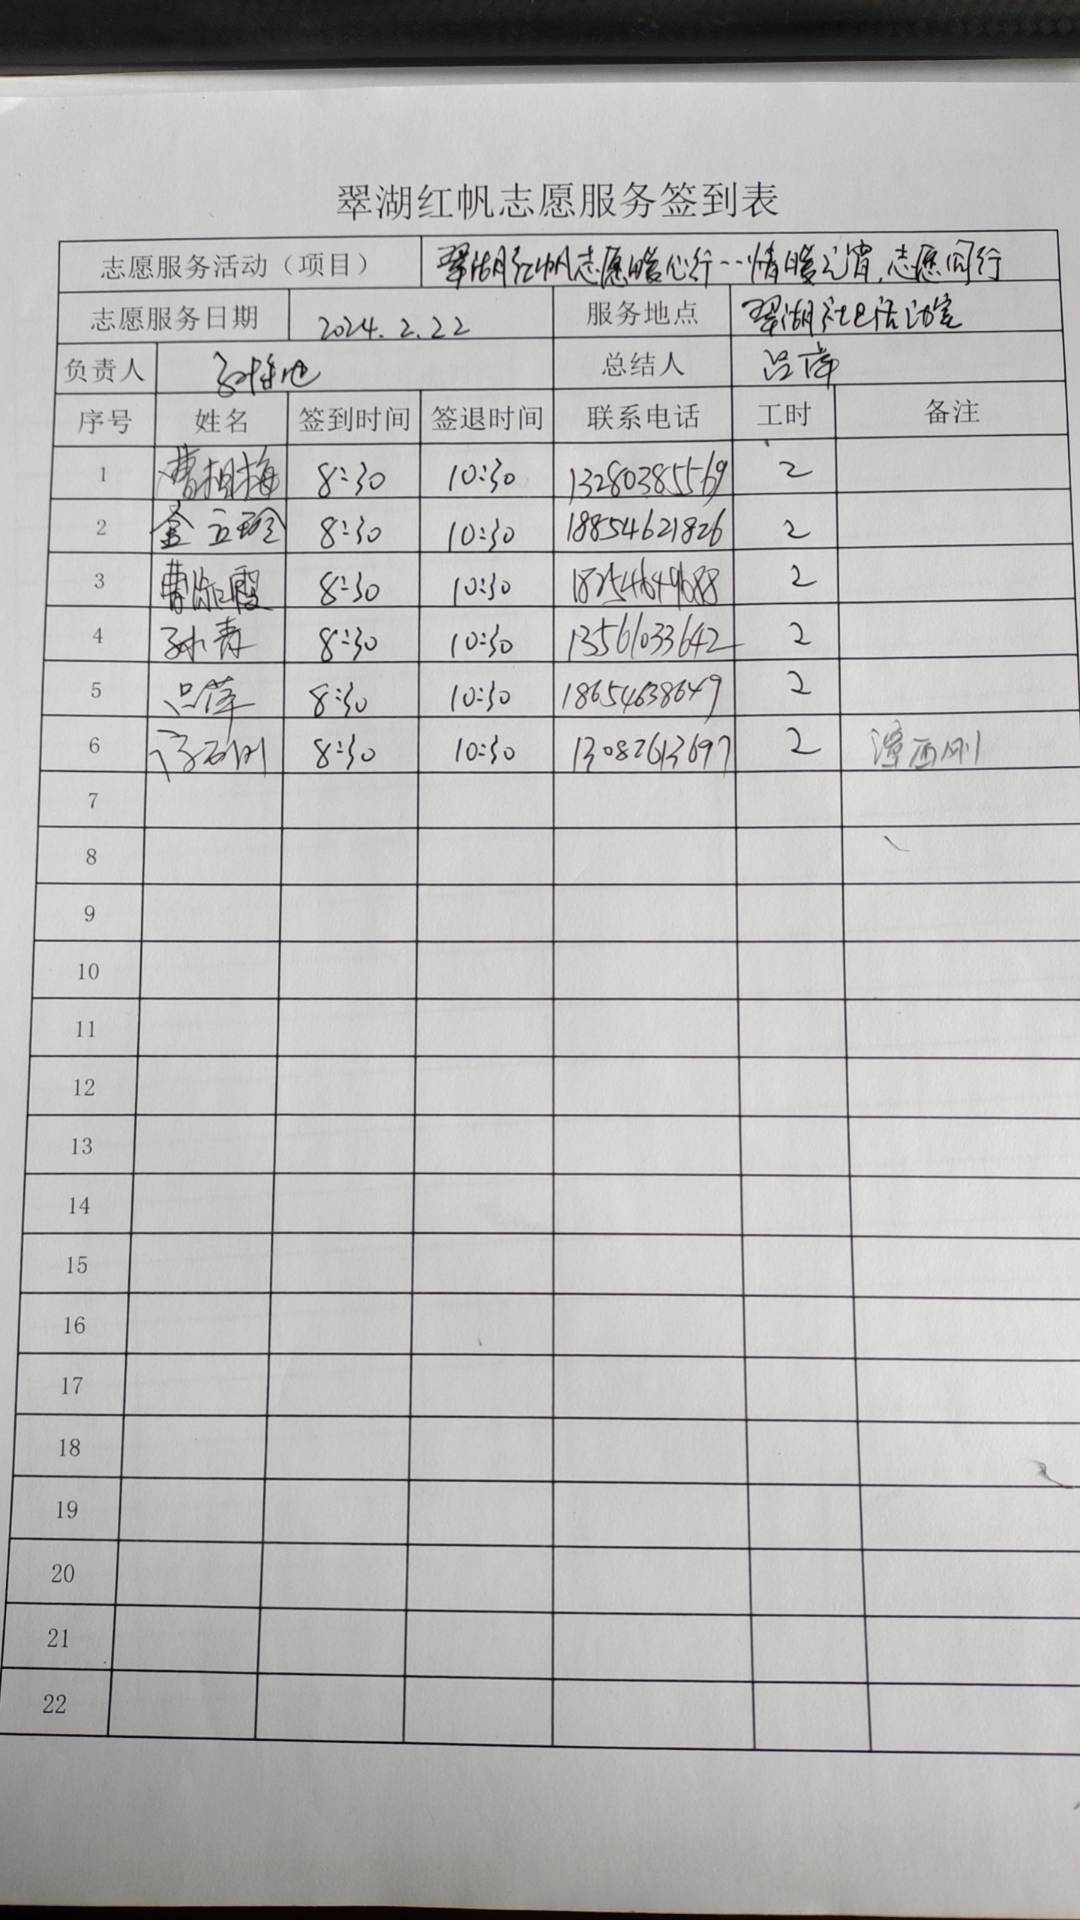 翠湖红帆志愿服务签到表
志愿服务活动（项目） 翠湖红帆志愿暖心行…情暖元宵,志愿同行
志愿服务日期 2024.2.22 服务地点 翠湖社区活动室
负责人 总结人 吕萍
序号 姓名 签到时间 签退时间 联系电话 工时 备注
1 曹相梅 8:30 10:30 13280385569 2
2 金立玲 8:30 10:30 18854621826 2
3 曹 霞 8:30 10:30 18254649688 2
4 孙青 8:30 10:30 13561033642 2
5 吕萍 8:30 10:30 18654638649 2
6 8:30 10:30 13082613697 2
7
8
9
10
11
12
13
14
15
16
17
18
19
20
21
22